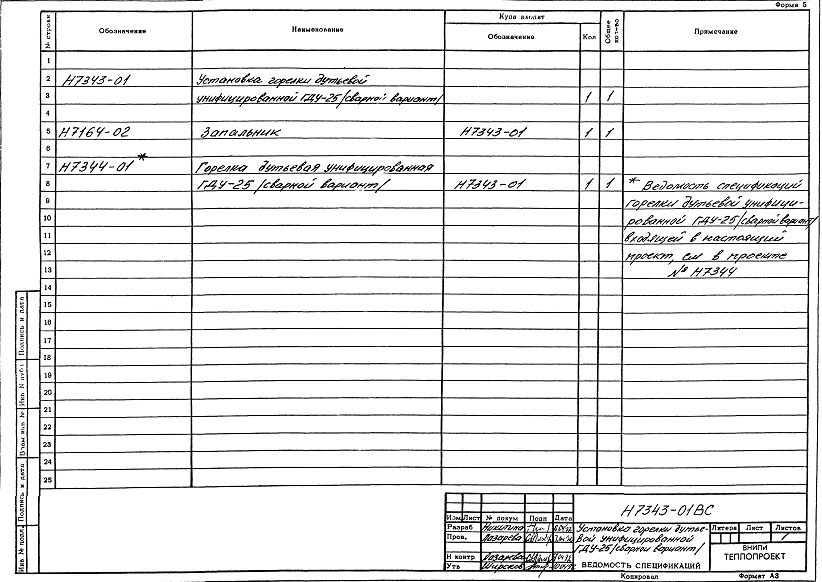 Форма 5
№ строки Обозначение Наименование Куда входит Обозначение Кол Общее кол-во Примечание
1
2 Н7343-01 Установка горелки дутьевой
3 унифицированной ГДУ-25/сварной вариант/ 1 1
4
5 Н7164-02 Запальник Н7343-01 1 1
6
7 Н7344-01* Горелка дутьевая унифицированная
8 ГДУ-25/сварной вариант/ Н7343-01 1 1 * Ведомость спецификаций
9 горелки дутьевой унифици-
10 рованной ГДУ-25/сварной вариант/
11 входящей в настоящий
12 проект, см в проекте
13 № Н7344
14
15
16
17
18
19
20
21
22
23
24
25
Инв № подл Подпись и дата Взам инв № Инв № дубл Подпись и дата
Н7343-01ВС
Изм Лист № докум Подп Дата
Разраб Никитина
Пров. Лазарева
Н контр
Утв
Установка горелки дутье-
вой унифицированной
ГДУ-25/сварной вариант/
ВЕДОМОСТЬ СПЕЦИФИКАЦИЙ
Литера Лист Листов
1
ВНИПИ
ТЕПЛОПРОЕКТ
Копировал Формат А3